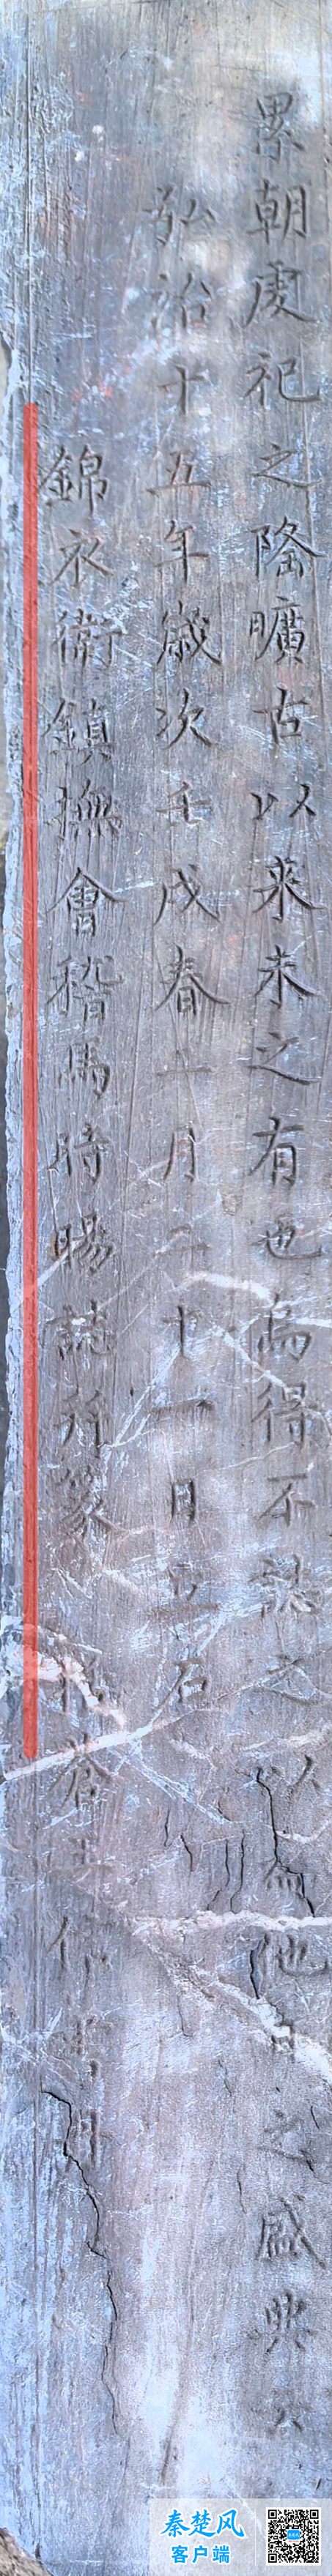 累朝虔祀之隆曠古以來未之有也烏得不誌之以爲他日之盛典云
弘治十五年歲次壬戌春二月二十一日立石
錦衣衛鎮撫會稽馬時暘誌并篆 括蒼王
秦楚风
客户端